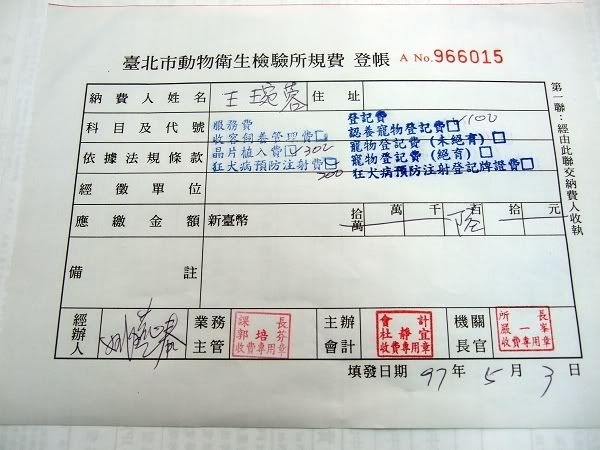 臺北市動物衛生檢驗所規費 登帳 A No.966015
納費人姓名 王琬蓉 住址
科目及代號
服務費
收容飼養管理費□
晶片植入費□ 300
狂犬病預防注射費□ 200
登記費
認養寵物登記費□ 100
寵物登記費(未絕育)□
寵物登記費(絕育)□
狂犬病預防注射登記牌證費□
依據法規條款
經徵單位
應繳金額 新臺幣 拾萬 萬 千 百 拾 元
備註
經辦人
業務主管 課長 郭培芬 收費專用章
主辦會計 會計 杜靜宜 收費專用章
機關長官 所長 嚴一峯 收費專用章
填發日期 97 年 5 月 3 日
第一聯:經由此聯交納費人收執